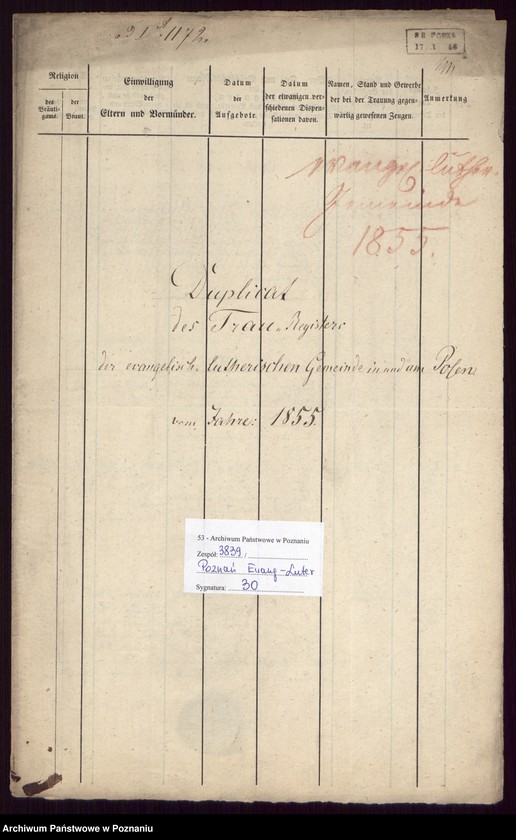 1172.
17. 1
Religion
des
Bräuti-
gams.
der
Braut.
Einwilligung
der
Eltern und Vormünder.
Datum
der
Aufgebote.
Datum
der etwanigen ver-
schiedenen Dispen-
sationen davon.
Namen, Stand und Gewerbe
der bei der Trauung gegen-
wärtig gewesenen Zeugen.
Anmerkung
evangel. luther.
Gemeinde
1855.
Duplicat
des Trau-Registers
der evangelisch-lutherischen Gemeinde in und um Posen
vom Jahre: 1855.
53 - Archiwum Państwowe w Poznaniu
Zespół: 3839 /
Poznań Ewang-Luter
Sygnatura: 30
Archiwum Państwowe w Poznaniu